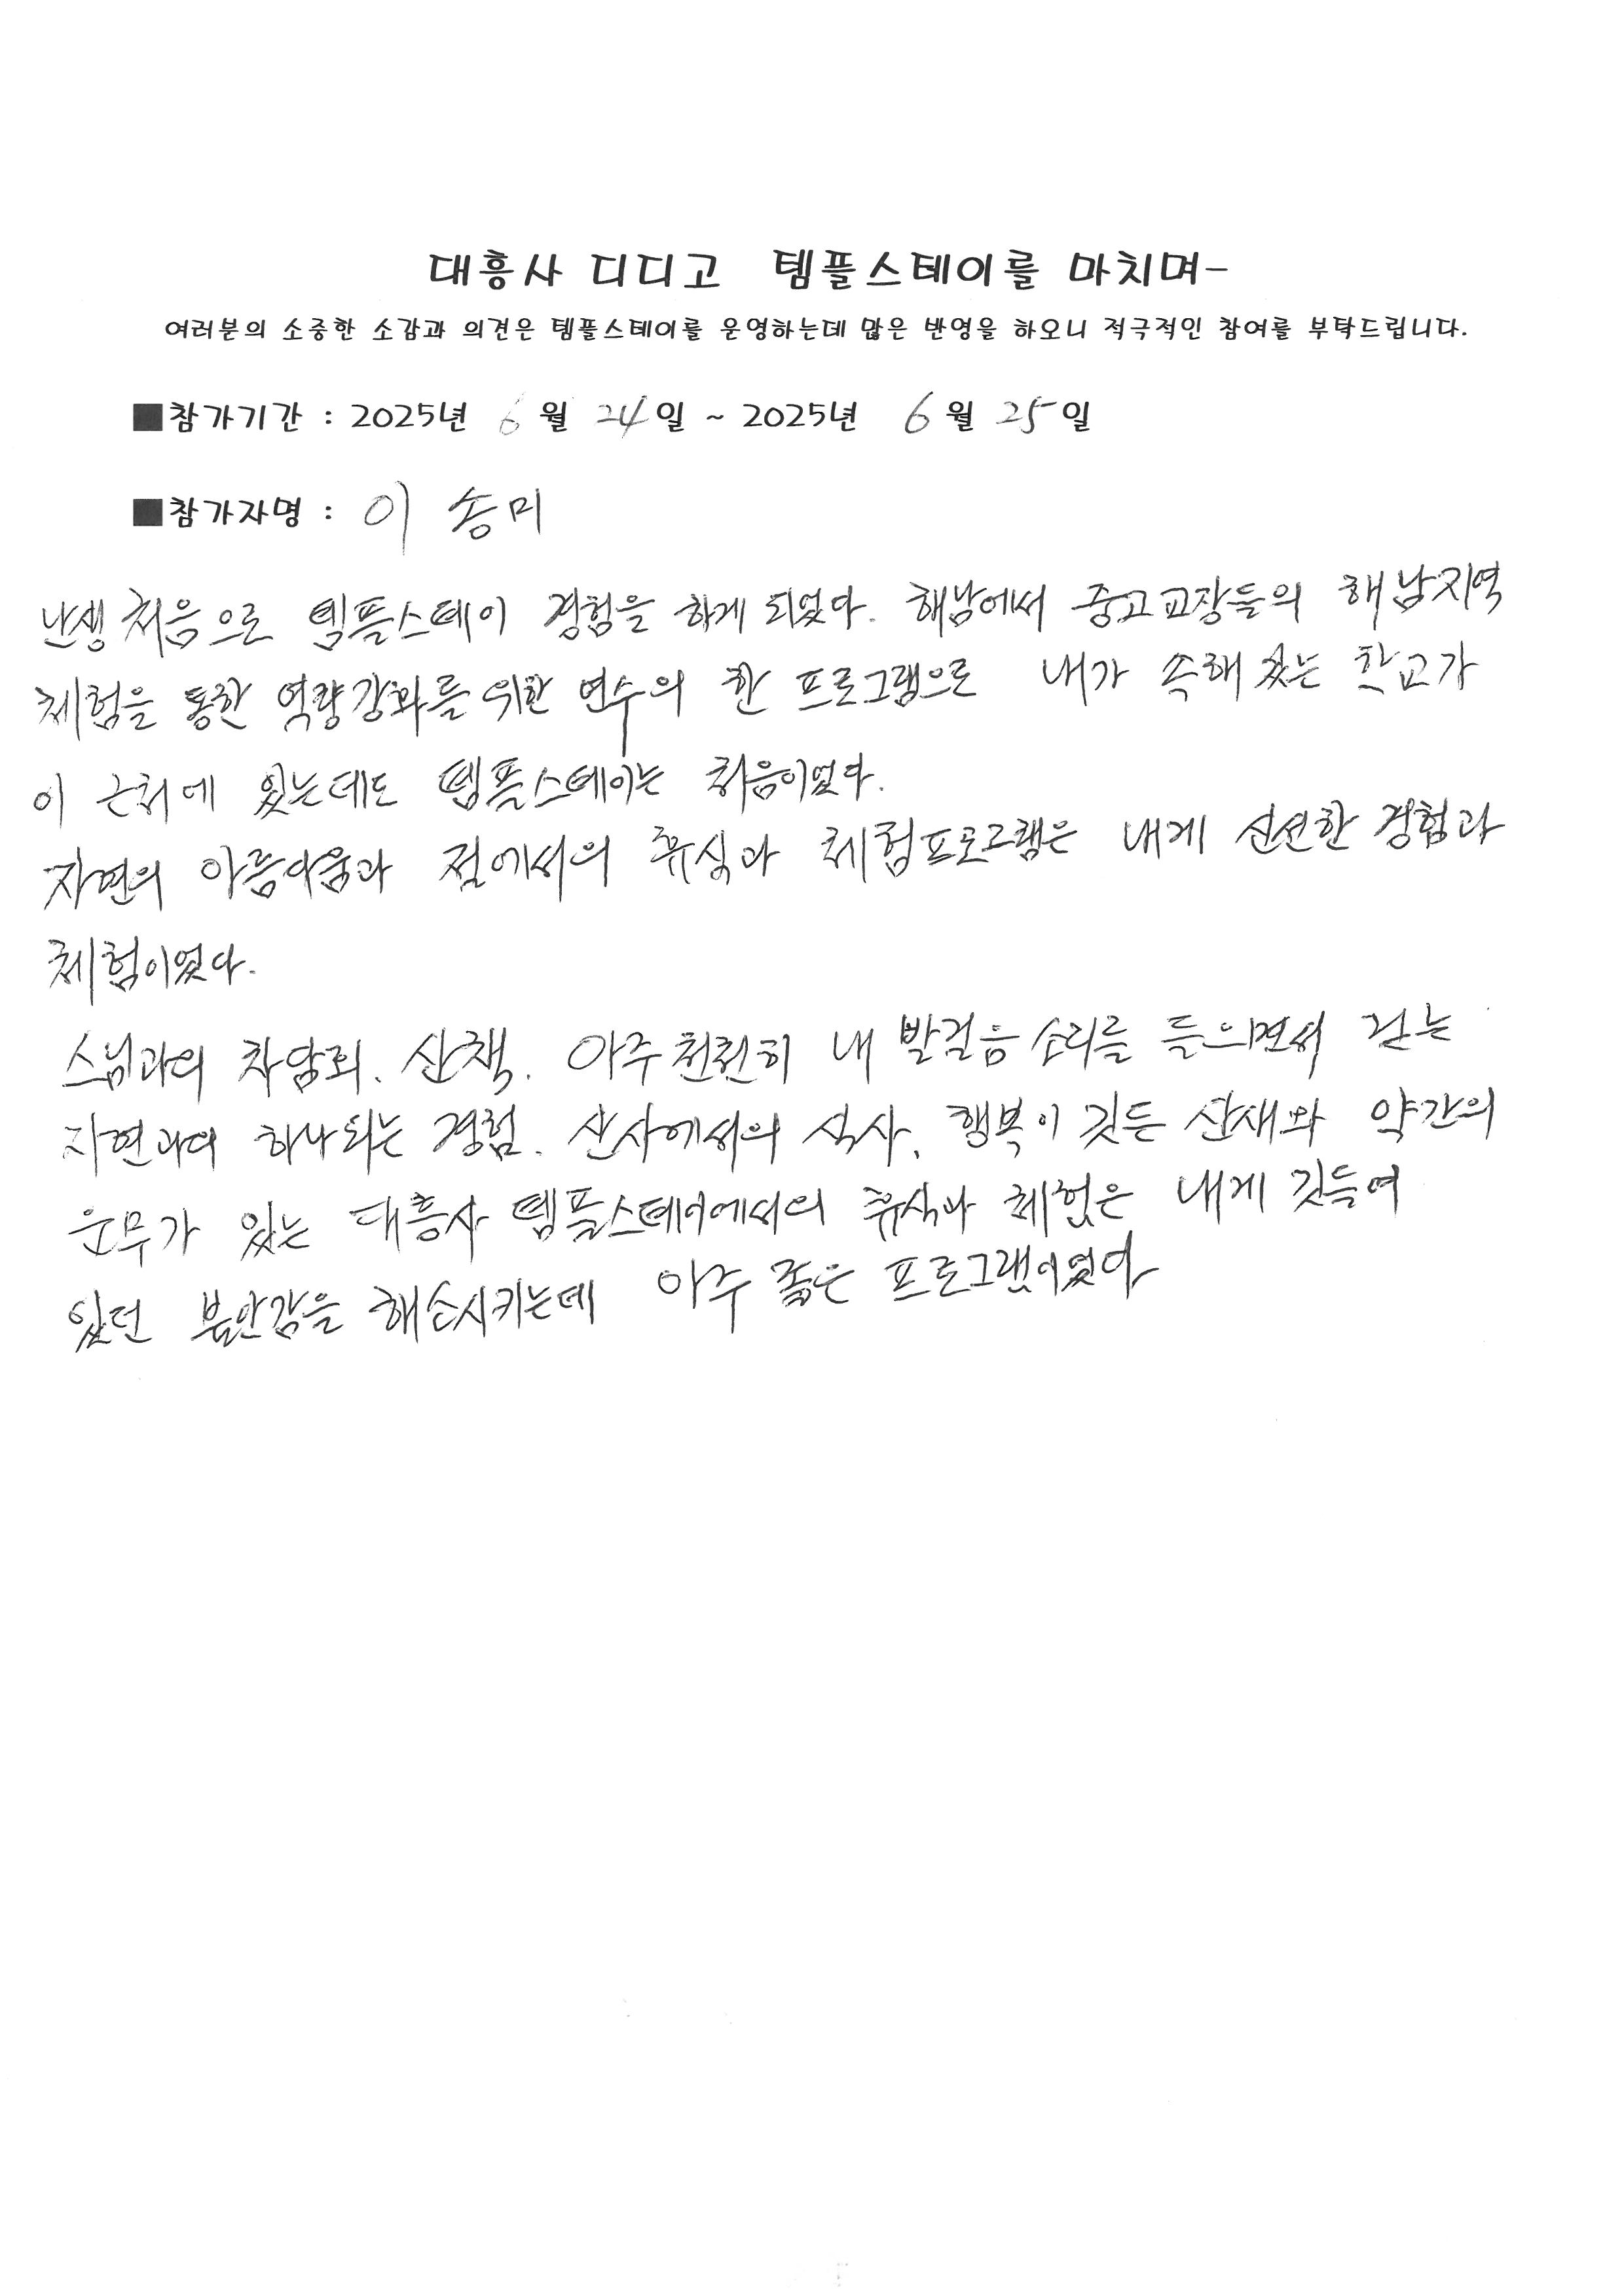 대흥사 디디고 템플스테이를 마치며-
여러분의 소중한 소감과 의견은 템플스테이를 운영하는데 많은 반영을 하오니 적극적인 참여를 부탁드립니다.
■참가기간 : 2025년 6월 24일 ~ 2025년 6월 25일
■참가자명 : 이송미
난생 처음으로 템플스테이 경험을 하게 되었다. 해남에서 중고교장들의 해남지역
체험을 통한 역량강화를 위한 연수의 한 프로그램으로 내가 속해 있는 학교가
이 근처에 있는데도 템플스테이는 처음이었다.
자연의 아름다움과 절에서의 휴식과 체험프로그램은 내게 신선한 경험과
체험이었다.
스님과의 차담회, 산책, 아주 천천히 내 발걸음 소리를 들으면서 걷는
자연과의 하나되는 경험, 산사에서의 식사, 행복이 깃든 산새와 약간의
운무가 있는 대흥사 템플스테이에서의 휴식과 체험은 내게 깃들여
있던 불안감을 해소시키는데 아주 좋은 프로그램이었다